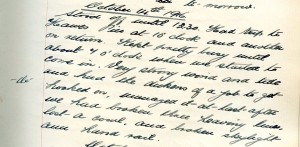 to morrow.
October 14th 1916.
Stood off until 12.30. Had trip to
Thames
at 10 o'clock and another
on return. Kept pretty busy until
about 4 o'clock when we started to
come in. Very strong wind and tide
and had the dickens of a job to get
hooked on, managed it at last after
we had broken three
lost a cowl, and broken skylight
and hand rail.